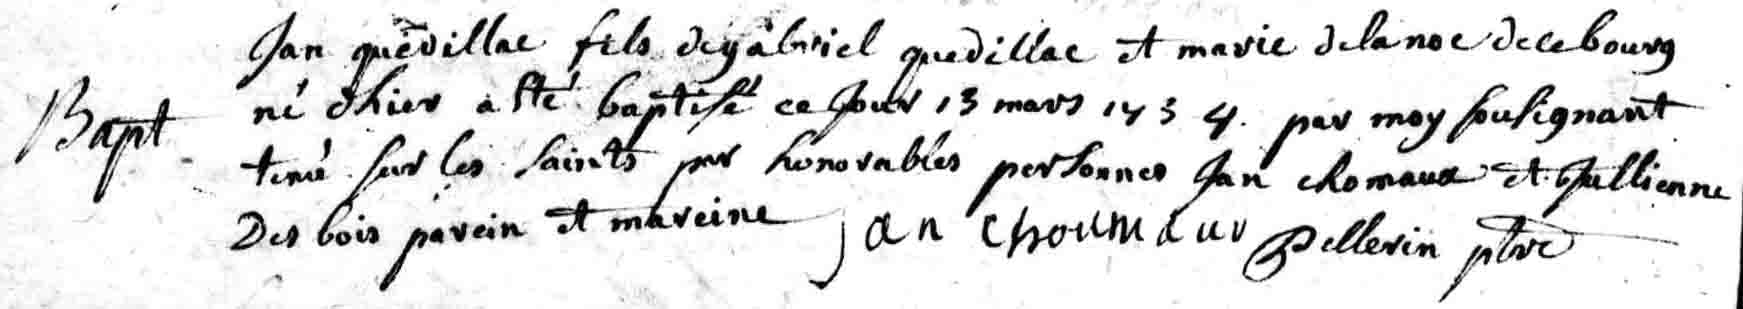 Jan quedillac fils de gabriel quedillac et marie delanoe de ce bourg
Bapt
né d'hier a été baptisé ce jour 13 mars 1734. par moy sousignant
tenu sur les saints par honorables personnes Jan chomaux et Jullienne
Des bois parein et mareine Jan choumaur Pellerin ptre